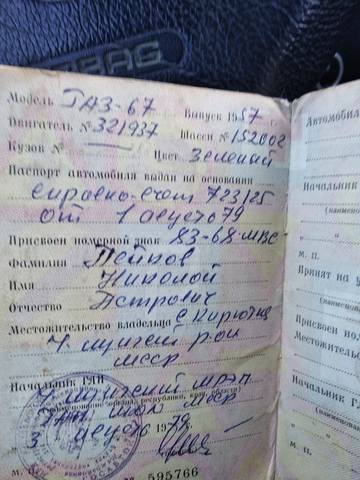 BAG
Модель ГАЗ-67 Выпуск 1957 г.
Двигатель № 321937 Шасси № 152002
Кузов № — Цвет Зеленый
Паспорт автомобиля выдан на основании
справка-счет 723125
от 1 августа 79
Присвоен номерной знак 83-68 МВС
Фамилия Пейков
Имя Николай
Отчество Петрович
Местожительство владельца с Кирютня
р-он
мсср
Начальник ГАИ
МРЭП
(наименование республики, края, области)
ГАИ МССР
3 августа 1979
М. П. № 595766
Автомобиль
Начальник
(наимен
М. П.
Принят на у
(наименован
Присвоен но
Местожитель
Начальник ГАИ
(наимен
М. П.